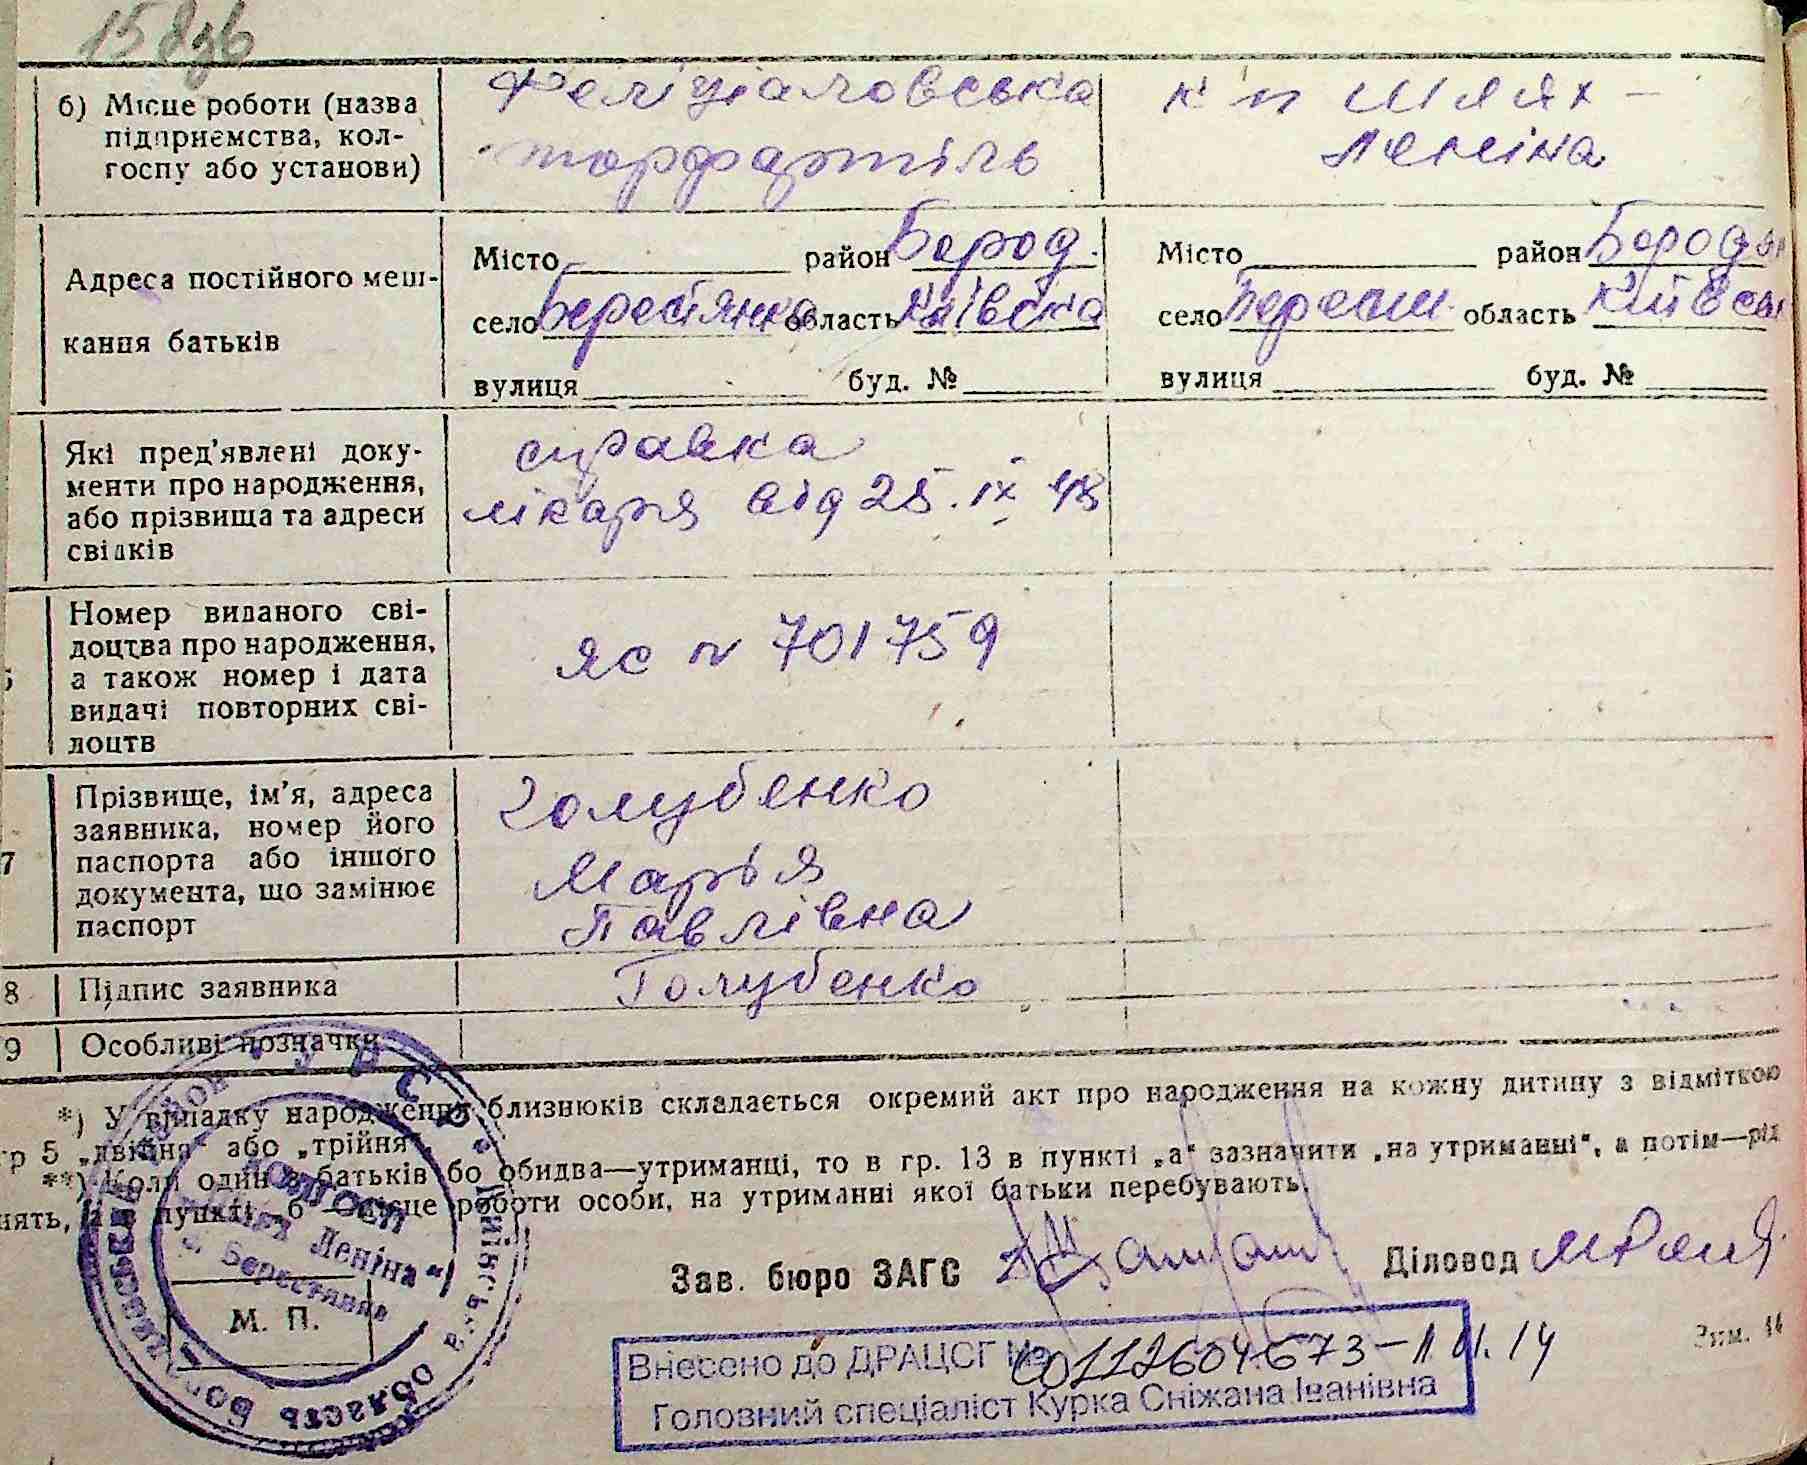 б) Місце роботи (назва
підприємства, кол-
госпу або установи)
Феліціаловська
торфартіль
к'п Шлях -
Леніна
Адреса постійного меш-
кання батьків
Місто район Бород.
село Берестянка область Київська
вулиця буд. №
Місто район Бородян
село Берест. область Київсь
вулиця буд. №
Які пред'явлені доку-
менти про народження,
або прізвища та адреси
свідків
справка
лікаря від 25.ІХ 48
Номер виданого сві-
доцтва про народження,
а також номер і дата
видачі повторних сві-
доцтв
ЯС № 701759
7
Прізвище, ім'я, адреса
заявника, номер його
паспорта або іншого
документа, що замінює
паспорт
Голубенко
Марія
Павлівна
8 Підпис заявника
Голубенко
9 Особливі позначки
*) У випадку народження близнюків складається окремий акт про народження на кожну дитину з відміткою
гр 5 „двійня" або „трійня".
**) Коли один з батьків бо обидва—утриманці, то в гр. 13 в пункті „а" зазначити „на утриманні", а потім—рід
нять, а в пункті „б" місце роботи особи, на утриманні якої батьки перебувають.
УРСР
Київська область
колгосп
„Шлях Леніна"
с. Берестянка
М. П.
Зав. бюро ЗАГС
Діловод
Внесено до ДРАЦСГ № 00112604673-11.01.14
Головний спеціаліст Курка Сніжана Іванівна